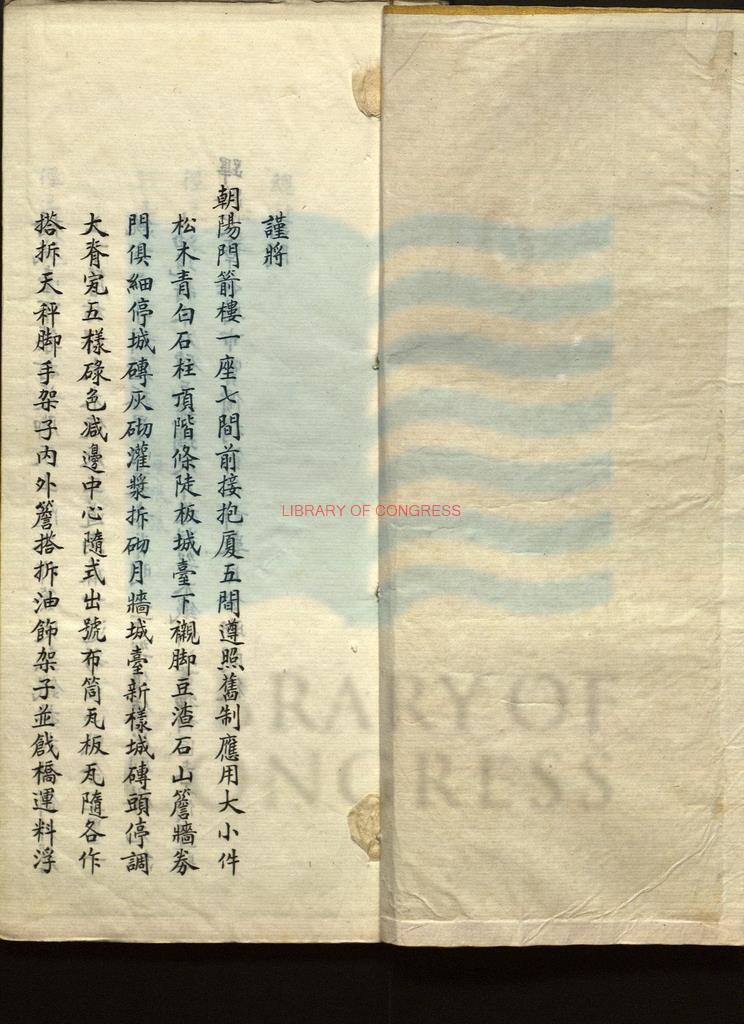 謹將
朝陽門箭樓一座七間前接抱厦五間遵照舊制應用大小件
松木青白石柱頂階條陡板城臺下襯脚豆渣石山簷牆券
門俱細停城磚灰砌灌漿拆砌月牆城臺新樣城磚頭停調
大脊宽五樣碌色减邊中心隨式出號布筒瓦板瓦隨各作
搭拆天秤脚手架子内外簷搭拆油飾架子並戧橋運料浮
LIBRARY OF CONGRESS
LIBRARY OF
CONGRESS